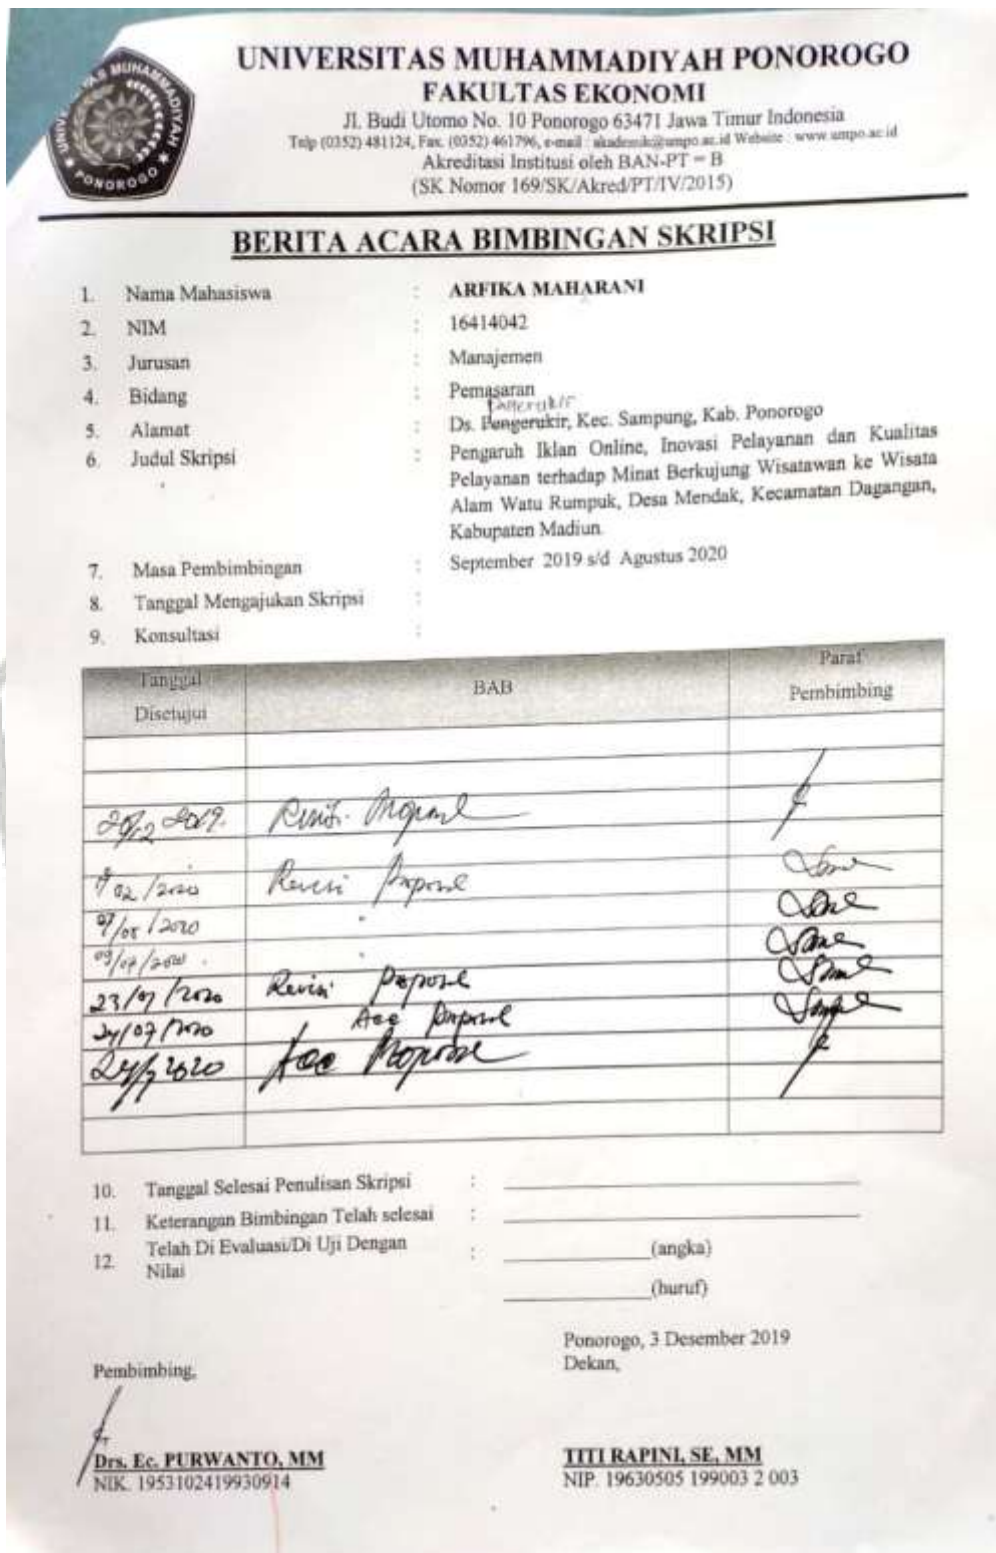 UNIVERSITAS MUHAMMADIYAH PONOROGO
FAKULTAS EKONOMI
Jl. Budi Utomo No. 10 Ponorogo 63471 Jawa Timur Indonesia
Telp (0352) 481124, Fax. (0352) 461796, e-mail : akademik@umpo.ac.id Website : www.umpo.ac.id
Akreditasi Institusi oleh BAN-PT = B
(SK Nomor 169/SK/Akred/PT/IV/2015)
UNIVERSITAS MUHAMMADIYAH
PONOROGO
BERITA ACARA BIMBINGAN SKRIPSI
1. Nama Mahasiswa : ARFIKA MAHARANI
2. NIM : 16414042
3. Jurusan : Manajemen
4. Bidang : Pemasaran
5. Alamat : Ds. Pengerukir, Kec. Sampung, Kab. Ponorogo
6. Judul Skripsi : Pengaruh Iklan Online, Inovasi Pelayanan dan Kualitas
Pelayanan terhadap Minat Berkujung Wisatawan ke Wisata
Alam Watu Rumpuk, Desa Mendak, Kecamatan Dagangan,
Kabupaten Madiun.
7. Masa Pembimbingan : September 2019 s/d Agustus 2020
8. Tanggal Mengajukan Skripsi :
9. Konsultasi :
Tanggal Disetujui BAB Paraf Pembimbing
2019. Revisi Proposal
02/2020 Revisi Proposal
/2020 "
"
23/07/2020 Revisi Proposal
24/07/2020 Acc Proposal
24/7 2020 Acc Proposal
10. Tanggal Selesai Penulisan Skripsi :
11. Keterangan Bimbingan Telah selesai :
12. Telah Di Evaluasi/Di Uji Dengan
Nilai : (angka)
(huruf)
Ponorogo, 3 Desember 2019
Pembimbing, Dekan,
Drs. Ec. PURWANTO, MM TITI RAPINI, SE, MM
NIK. 1953102419930914 NIP. 19630505 199003 2 003